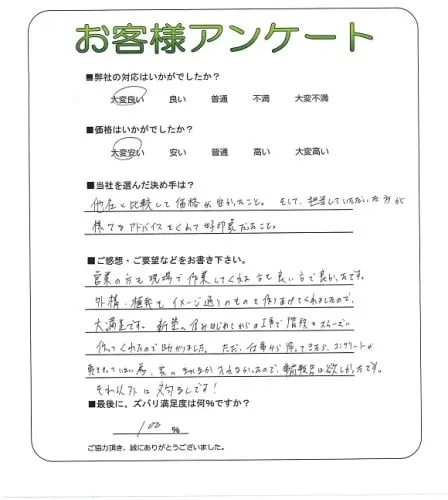 お客様アンケート
■弊社の対応はいかがでしたか？
大変良い 良い 普通 不満 大変不満
■価格はいかがでしたか？
大変安い 安い 普通 高い 大変高い
■当社を選んだ決め手は？
他社と比較して価格が安かったこと。そして、担当していただいた方が
様々なアドバイスをくれて好印象だったこと。
■ご感想・ご要望などをお書き下さい。
営業の方も現場で作業してくれる方も良い方で良かったです。
外構・植栽もイメージ通りのものを作りあげてくれましたので、
大満足です。新築に住みはじめてからの工事で階段をスムーズに
作ってくれたので助かりました。ただ、仕事から帰ってきたら、コンクリートが
家に 入れなかったので、 欲しかったです。
それ以外は 満足です！
■最後に、ズバリ満足度は何％ですか？
100 ％
ご協力頂き、誠にありがとうございました。